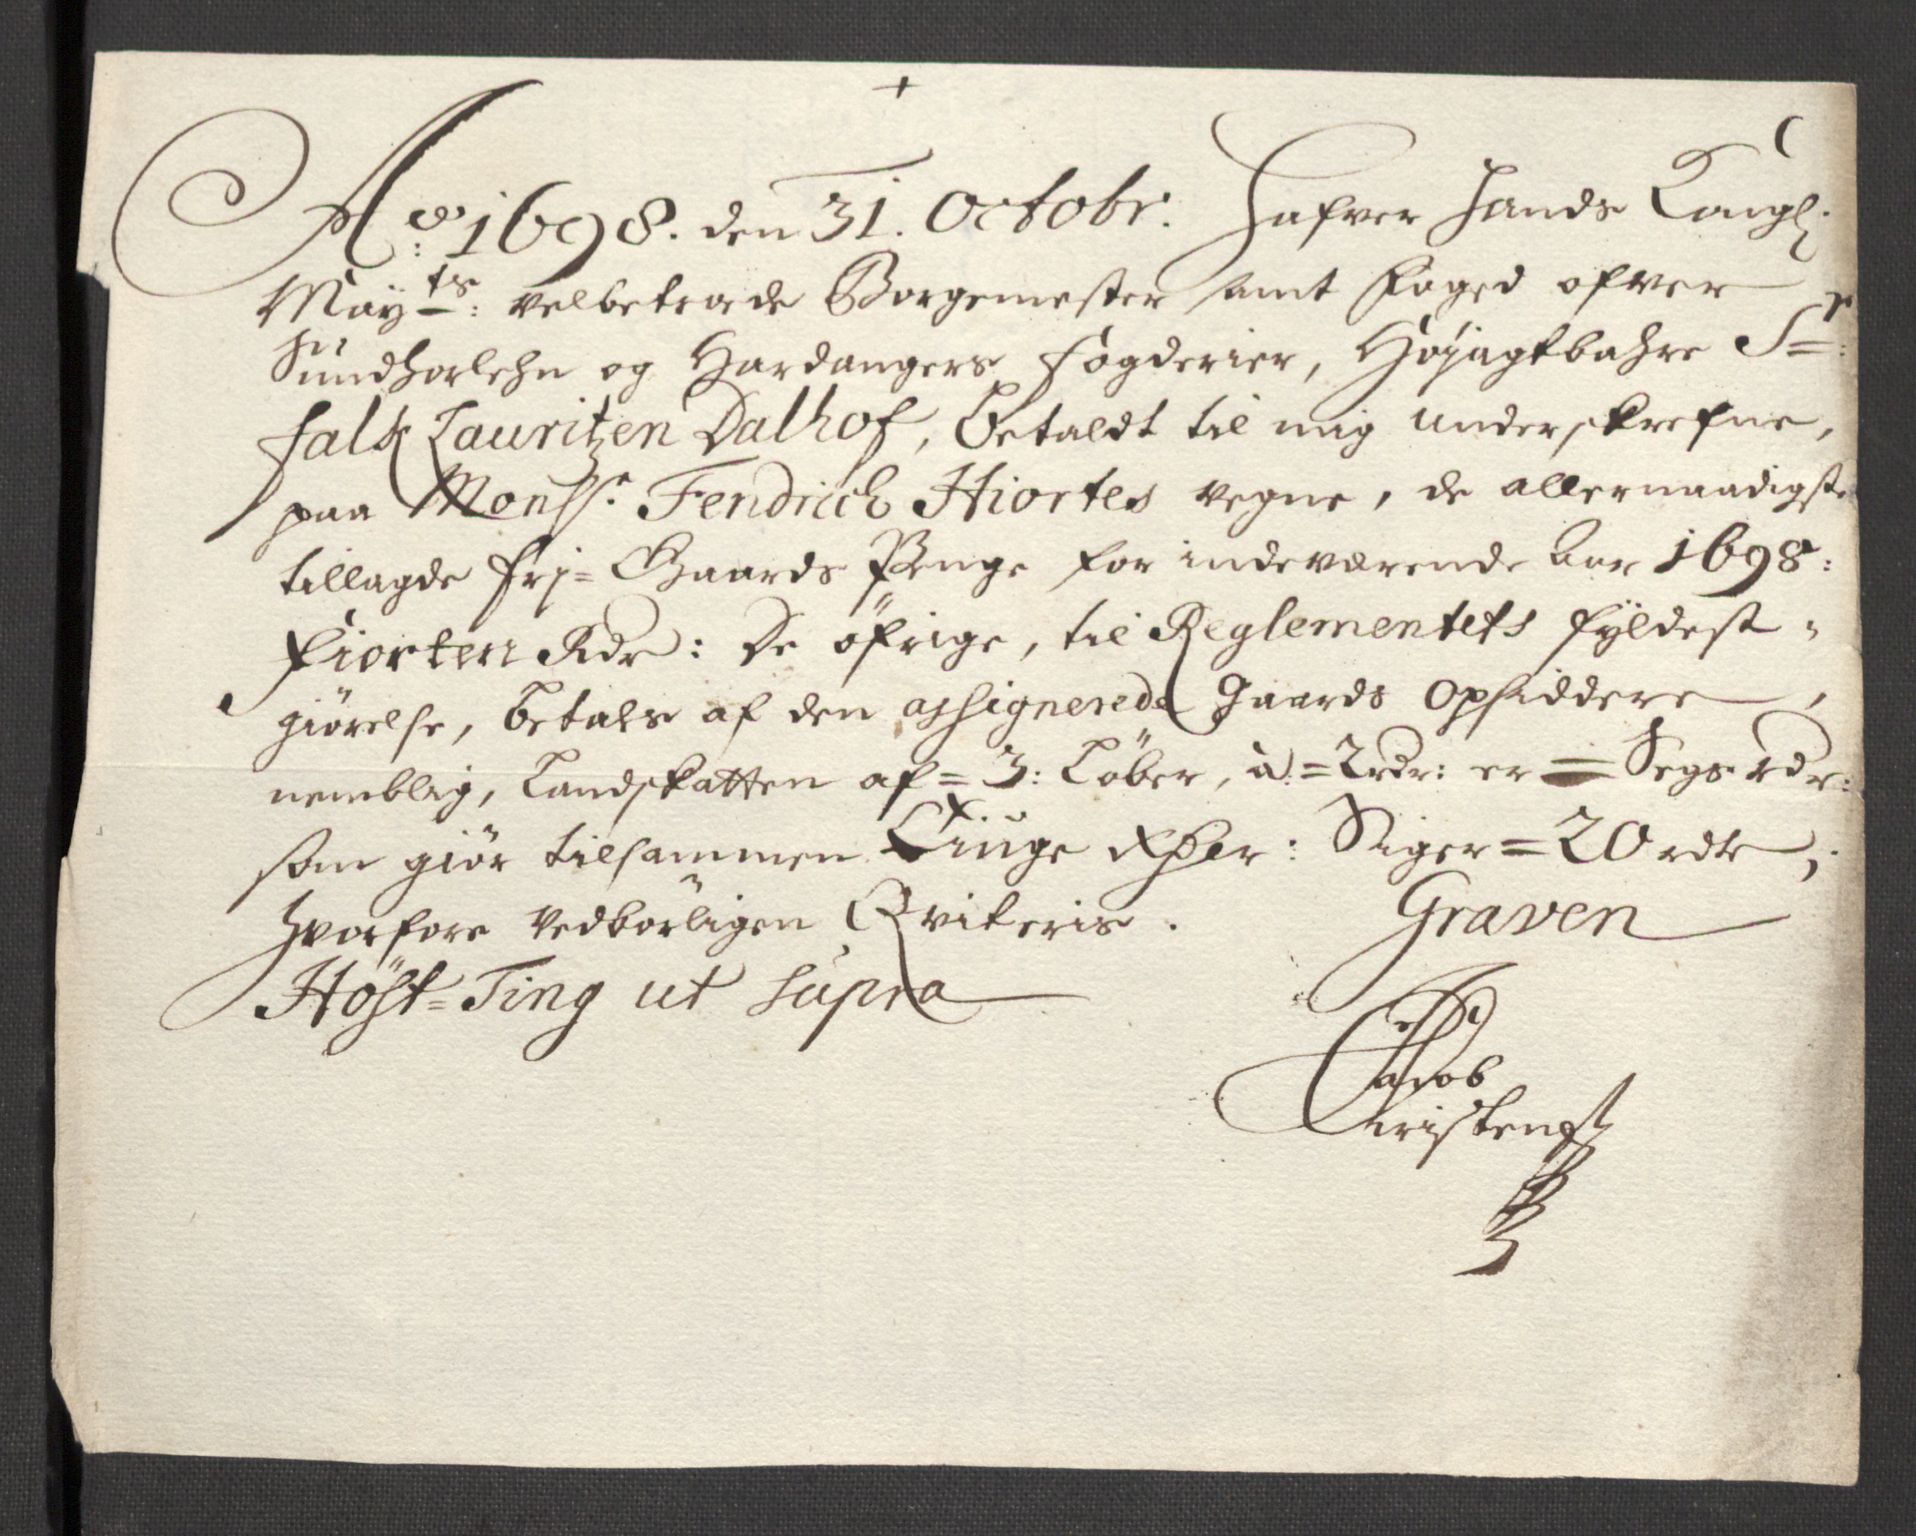 +
Ao: 1698. den 31. Octobr. Hafver Hands Kongl:
Mayts: velbetroede Borgemester samt Foged ofver
Sundhorlehn og Hardangers Fogderier, Höyagtbahre Sr:
Falk Lauritzen Dalhof, betaldt til mig underskrefne,
paa Monss.r Fendrich Hiortes vegne, de allernaadigste
tillagde Frj= Gaards Penge for indeværende Aar 1698:
Fiorten Rdr: De öfrige, til Reglementets fyldest=
giörelse, betales af den assignerede Gaards Opsiddere,
nemblig, Landskatten af = 3: Löber, à = 2 rdr: er = Segs rdr:
som giör tilsammen Tiuge Rixdr: Siger = 20 rdr,
hvorfore vedbörligen Qviteris. Graven
Höst= Ting ut supra
Jacob
Christens